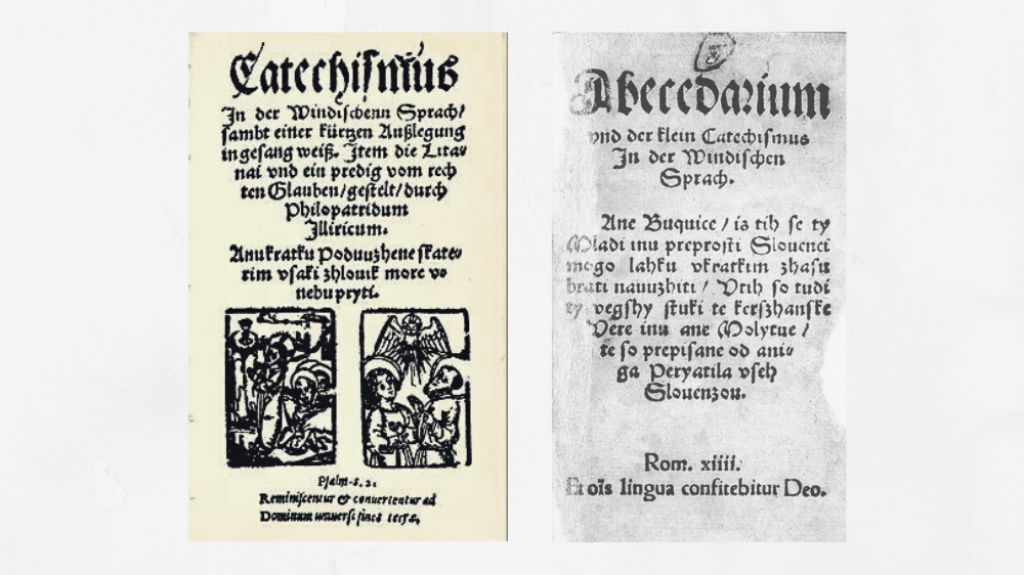 Catechismus
In der Windischenn Sprach/
sambt einer kürtzen Außlegung
in gesang weiß. Item die Lita⸗
nai vnd ein predig vom rech
ten Glauben/gestelt/durch
Philopatridum
Illiricum.
Anu kratku Poduuzhene skate⸗
rim vsaki zhlouik more vo
nebu pryti.
Psalm
Reminiscentur & conuertentur ad
Dominum uniuersi fines terræ.
Abecedarium
vnd der klein Catechismus
In der Windischen
Sprach.
Ane Buquice / is tih se ty
Mladi inu preprosti Slouenci
mogo lahku vkratkim zhasu
brati nauuzhiti / Vtih so tudi
ty vegshy stuki te kerszhanske
Vere inu ane Molytue /
te so prepisane od ani⸗
ga Peryatila vseh
Slouenzou.
Rom. xiiii.
Et oīs lingua confitebitur Deo.